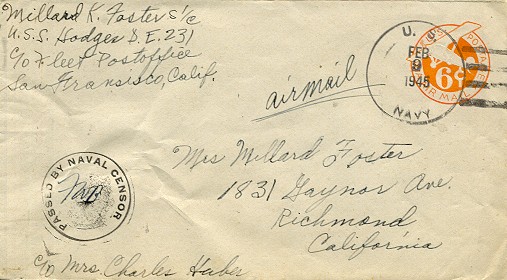 Millard K. Foster S 1/c
U.S.S. Hodges D.E. 231
c/o Fleet Postoffice
San Fransisco, Calif.
airmail
U. S.
FEB
9
1945
NAVY
6¢
AIR MAIL
Mrs Millard Foster
1831 Gaynor Ave.
Richmond
California
PASSED BY NAVAL CENSOR
c/o Mrs. Charles Huber